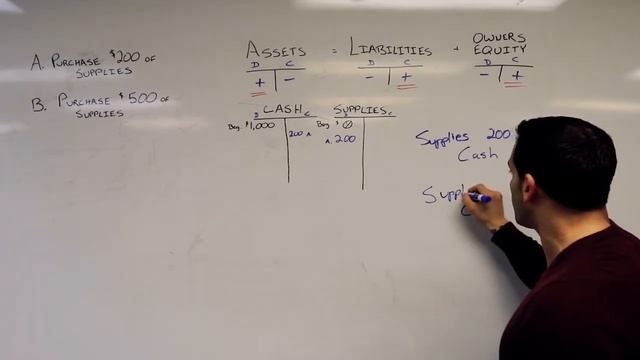 A. PURCHASE $200 OF
SUPPLIES
B. PURCHASE $500 OF
SUPPLIES
ASSETS = LIABILITIES + OWNERS
EQUITY
D C D C D C
+ - - + - +
D CASH C SUPPLIES C
Beg. $1,000 Beg. $ 0
200 A A. 200
Supplies 200
Cash
Suppl
C